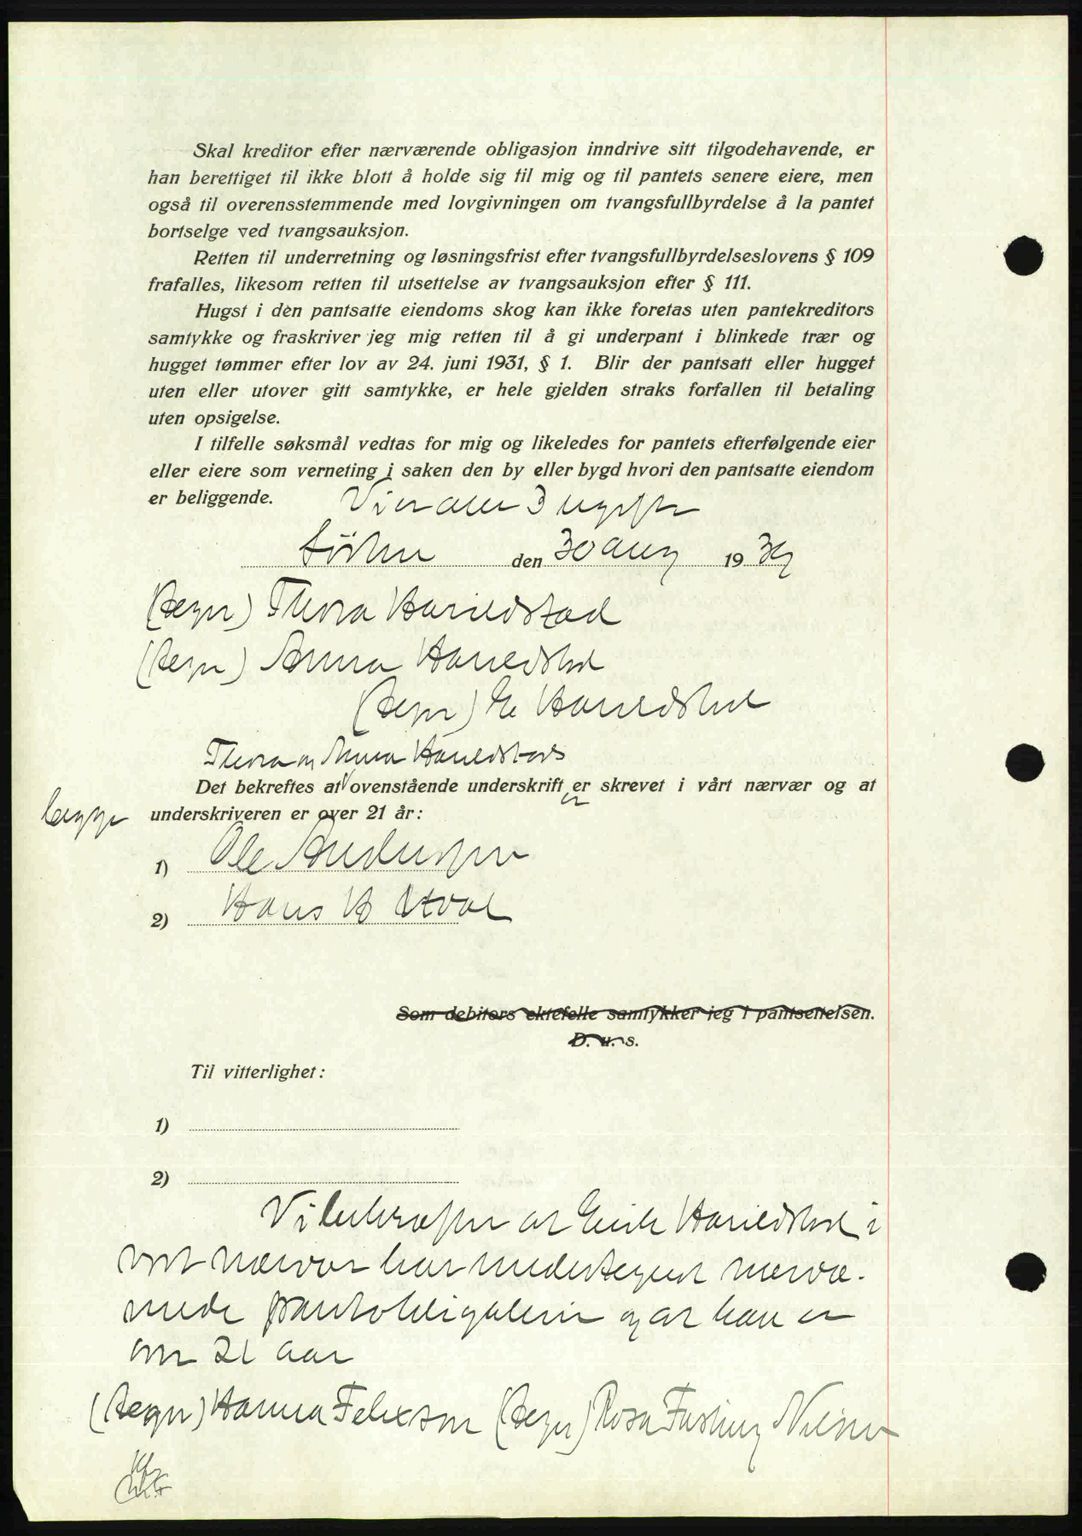 Skal kreditor efter nærværende obligasjon inndrive sitt tilgodehavende, er
han berettiget til ikke blott å holde sig til mig og til pantets senere eiere, men
også til overensstemmende med lovgivningen om tvangsfullbyrdelse å la pantet
bortselge ved tvangsauksjon.
Retten til underretning og løsningsfrist efter tvangsfullbyrdelseslovens § 109
frafalles, likesom retten til utsettelse av tvangsauksjon efter § 111.
Hugst i den pantsatte eiendoms skog kan ikke foretas uten pantekreditors
samtykke og fraskriver jeg mig retten til å gi underpant i blinkede trær og
hugget tømmer efter lov av 24. juni 1931, § 1. Blir der pantsatt eller hugget
uten eller utover gitt samtykke, er hele gjelden straks forfallen til betaling
uten opsigelse.
I tilfelle søksmål vedtas for mig og likeledes for pantets efterfølgende eier
eller eiere som verneting i saken den by eller bygd hvori den pantsatte eiendom
er beliggende.
Vi er alle 3 ugifte
den 30 aug 1939
(tegn) Thora Harildstad
(tegn) Anna Harildstad
(tegn) E Harildstad
Thora og Anna Harildstads
Det bekreftes at ovenstående underskrift er skrevet i vårt nærvær og at
er
begge
underskriveren er over 21 år:
1) Ole Andersen
2) Hans H
Som debitors ektefelle samtykker jeg i pantsettelsen.
D. u. s.
Til vitterlighet:
1)
2)
Vi bekrefter at Erik Harildstad i
vort nærvær har undertegnet nærvæ-
rende pantobligation og at han er
over 21 aar
(tegn) Hanna Felixson (tegn) Rosa Fasting Nilsen